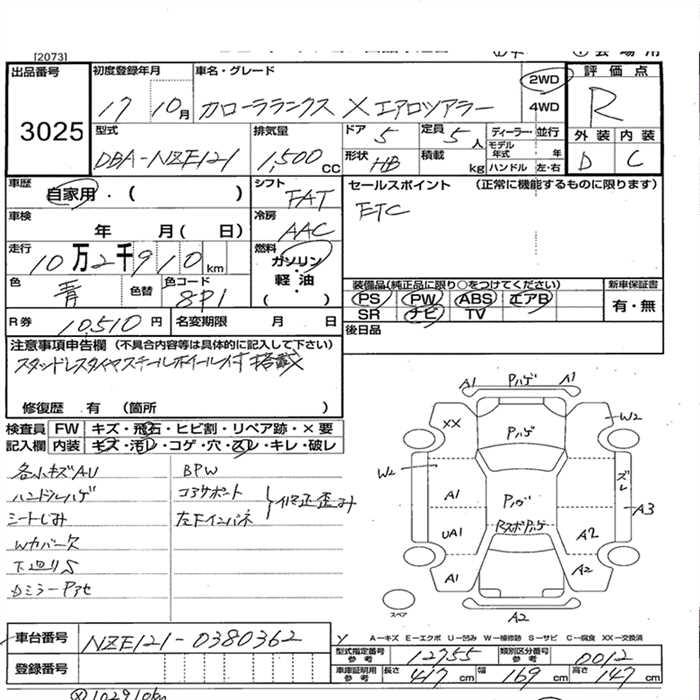 [2073]
出品番号 3025
初度登録年月 17 10月
車名・グレード カローラランクス X エアロツアラー
2WD
4WD
評価点 R
外装 内装
D C
型式 DBA-NZE121
排気量 1,500 CC
ドア 5
定員 5人
形状 HB
積載 kg
ディーラー・並行
モデル年式 年
ハンドル 左・右
車歴 自家用・( )
シフト FAT
車検 年 月 ( 日)
冷房 AAC
走行 10万2千910km
燃料 ガソリン・軽油・( )
色 青 色替
色コード 8P1
R券 10,510円
名変期限 月 日
セールスポイント (正常に機能するものに限ります)
ETC
装備品(純正品に限り○をつけてください)
PS PW ABS エアB
SR ナビ TV
新車保証書
有・無
後日品
注意事項申告欄 (不具合内容等は具体的に記入して下さい)
スタッドレスタイヤスチールホイール付 搭載
修復歴 有 (箇所 )
検査員記入欄
FW キズ・飛石・ヒビ割・リペア跡・×要
内装 キズ・汚レ・コゲ・穴・スレ・キレ・破レ
各小キズAU
ハンドルハゲ
シートしみ
Wカバーズ
下廻りS
Dミラーアセ
BPW
コアサポート
左Fインパネ
修正歪み
A1 Pハゲ A1
XX Pハゲ W2
W2
A1 Pハゲ ズレ
UA1 Rスポハゲ A2 A3
A1 A2
スペア
A2
A－キズ E－エクボ U－凹み W－補修跡 S－サビ C－腐食 XX－交換済
車台番号 NZE121-0380362
登録番号
型式指定番号 参考 12755
類別区分番号 参考 0012
車庫証明用 参考 長さ 417cm 幅 169cm 高さ 147cm
102910km